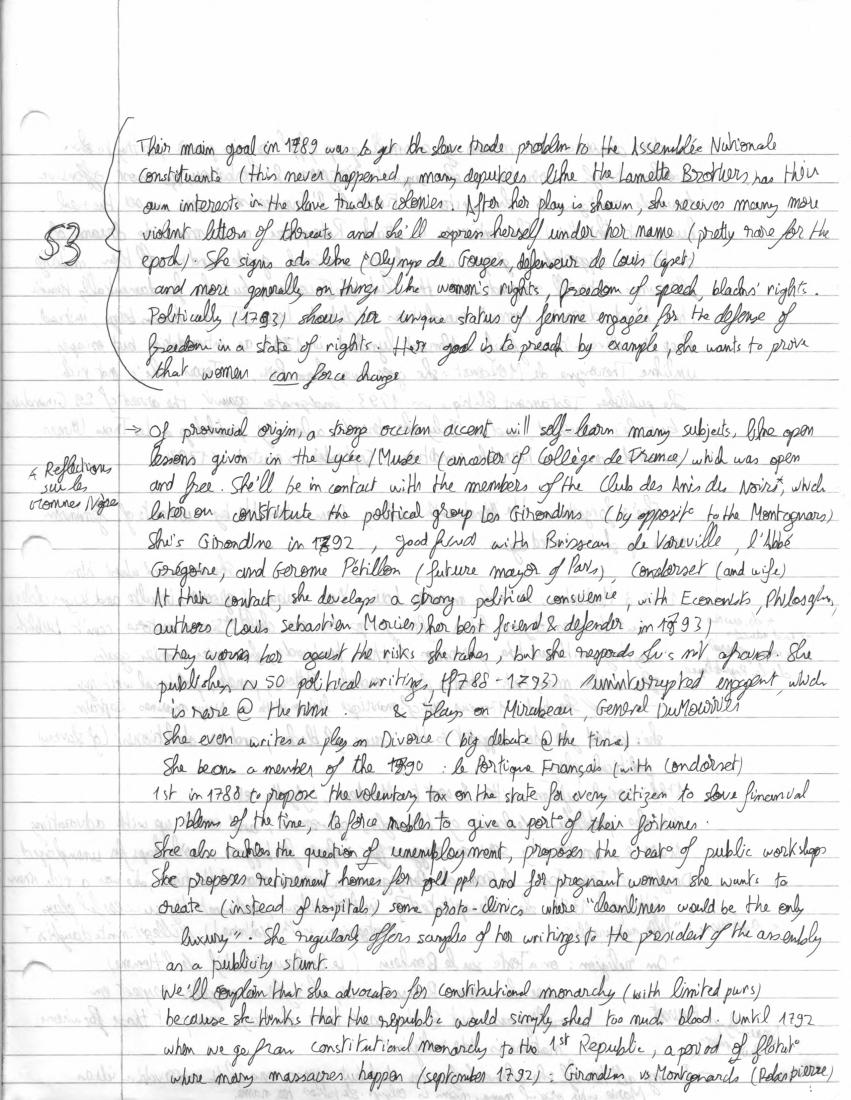 Their main goal in 1789 was to get the slave trade problem to the Assemblée Nationale
Constituante (this never happened, many deputees like the Lamette Brothers, has their
own interests in the slave trade & colonies. After her play is shown, she receives many more
violent letters of threats and she'll express herself under her name (pretty rare for the
epoch). She signs ads like (Olympe de Gouges, défenseur de Louis Capet)
and more generally on things like women's rights, freedom of speech, blacks' rights.
53
Politically (1793) shows her unique status of femme engagée for the defense of
freedom in a state of rights. Her goal is to preach by example, she wants to prove
that women can force change
→ Of provincial origin, a strong occitan accent will self-learn many subjects, like open
lessons given in the Lycée/Musée (ancester of Collège de France) which was open
and free. She'll be in contact with the members of the Club des Amis des Noirs*, which
* Reflections
sur les
Hommes Nègres
later on constitute the political group Les Girondins (by opposit° to the Montagnars)
She's Girondine in 1792, good friend with Brisseau de Vareville, l'Abbé
Grégoire, and Gerome Pétillon (future mayor of Paris), Condorset (and wife)
At their contact, she develops a strong political conscience, with Economists, Philosophers,
authors (Louis Sebastien Mercies, her best friend & defender in 1793)
They worn her against the risks she takes, but she responds she's not afraid. She
publishes ~ 50 political writings, (1788-1793) uninterrupted engagent, which
is rare @ the time. & plays on Mirabeau, General DuMouries
She even writes a play on Divorce (big debate @ the time).
She becams a member of the 1790: le Portique Français (with Condorset)
1st in 1788 to propose the voluntary tax on the state for every citizen to slove financial
pblems of the time, to force nobles to give a part of their fortunes.
She also tackles the question of unemployment, proposes the creat° of public workshops
She proposes retirement homes for old ppl and for pregnant women she wants to
create (instead of hospitals) some proto-clinics where "cleanliness would be the only
luxury". She regularly offers samples of her writings to the president of the assembly
as a publicity stunt.
We'll explain that she advocates for constitutional monarchy (with limited pwrs)
because she thinks that the republic would simply shed too much blood. Until 1792
when we go from constitutional monarchy to the 1st Republic, a period of
where many massacres happen (september 1792): Girondins vs Montgonards (Robespierre)